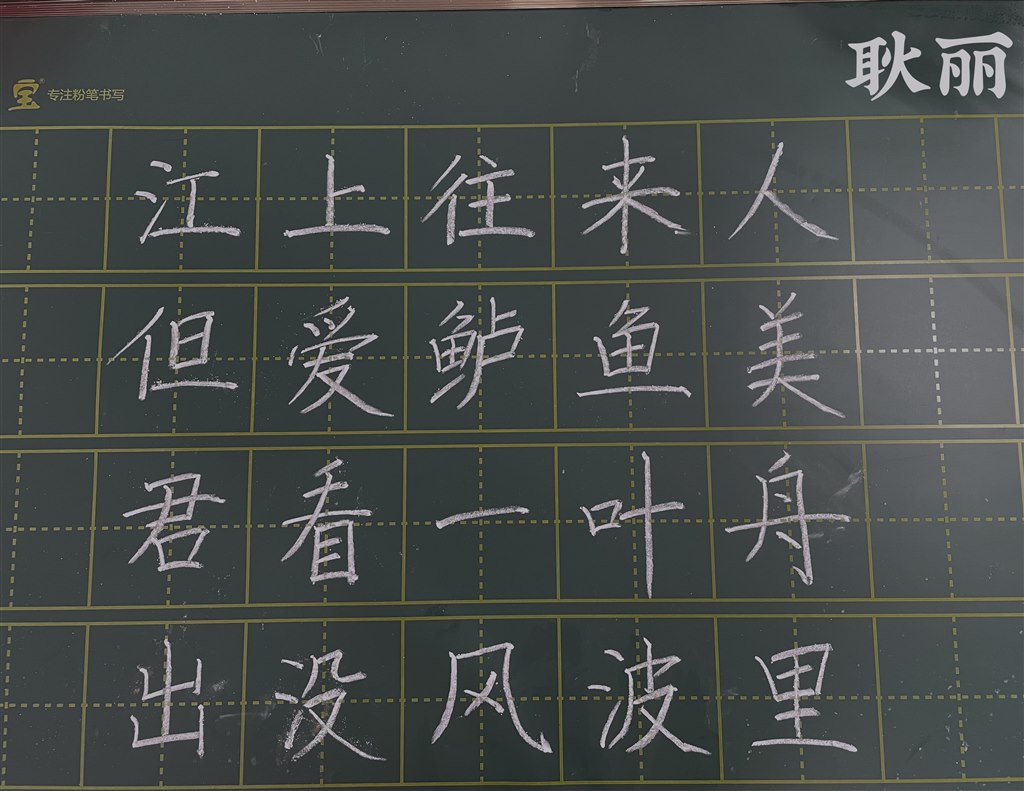 耿丽
宝® 专注粉笔书写
江上往来人
但爱鲈鱼美
君看一叶舟
出没风波里